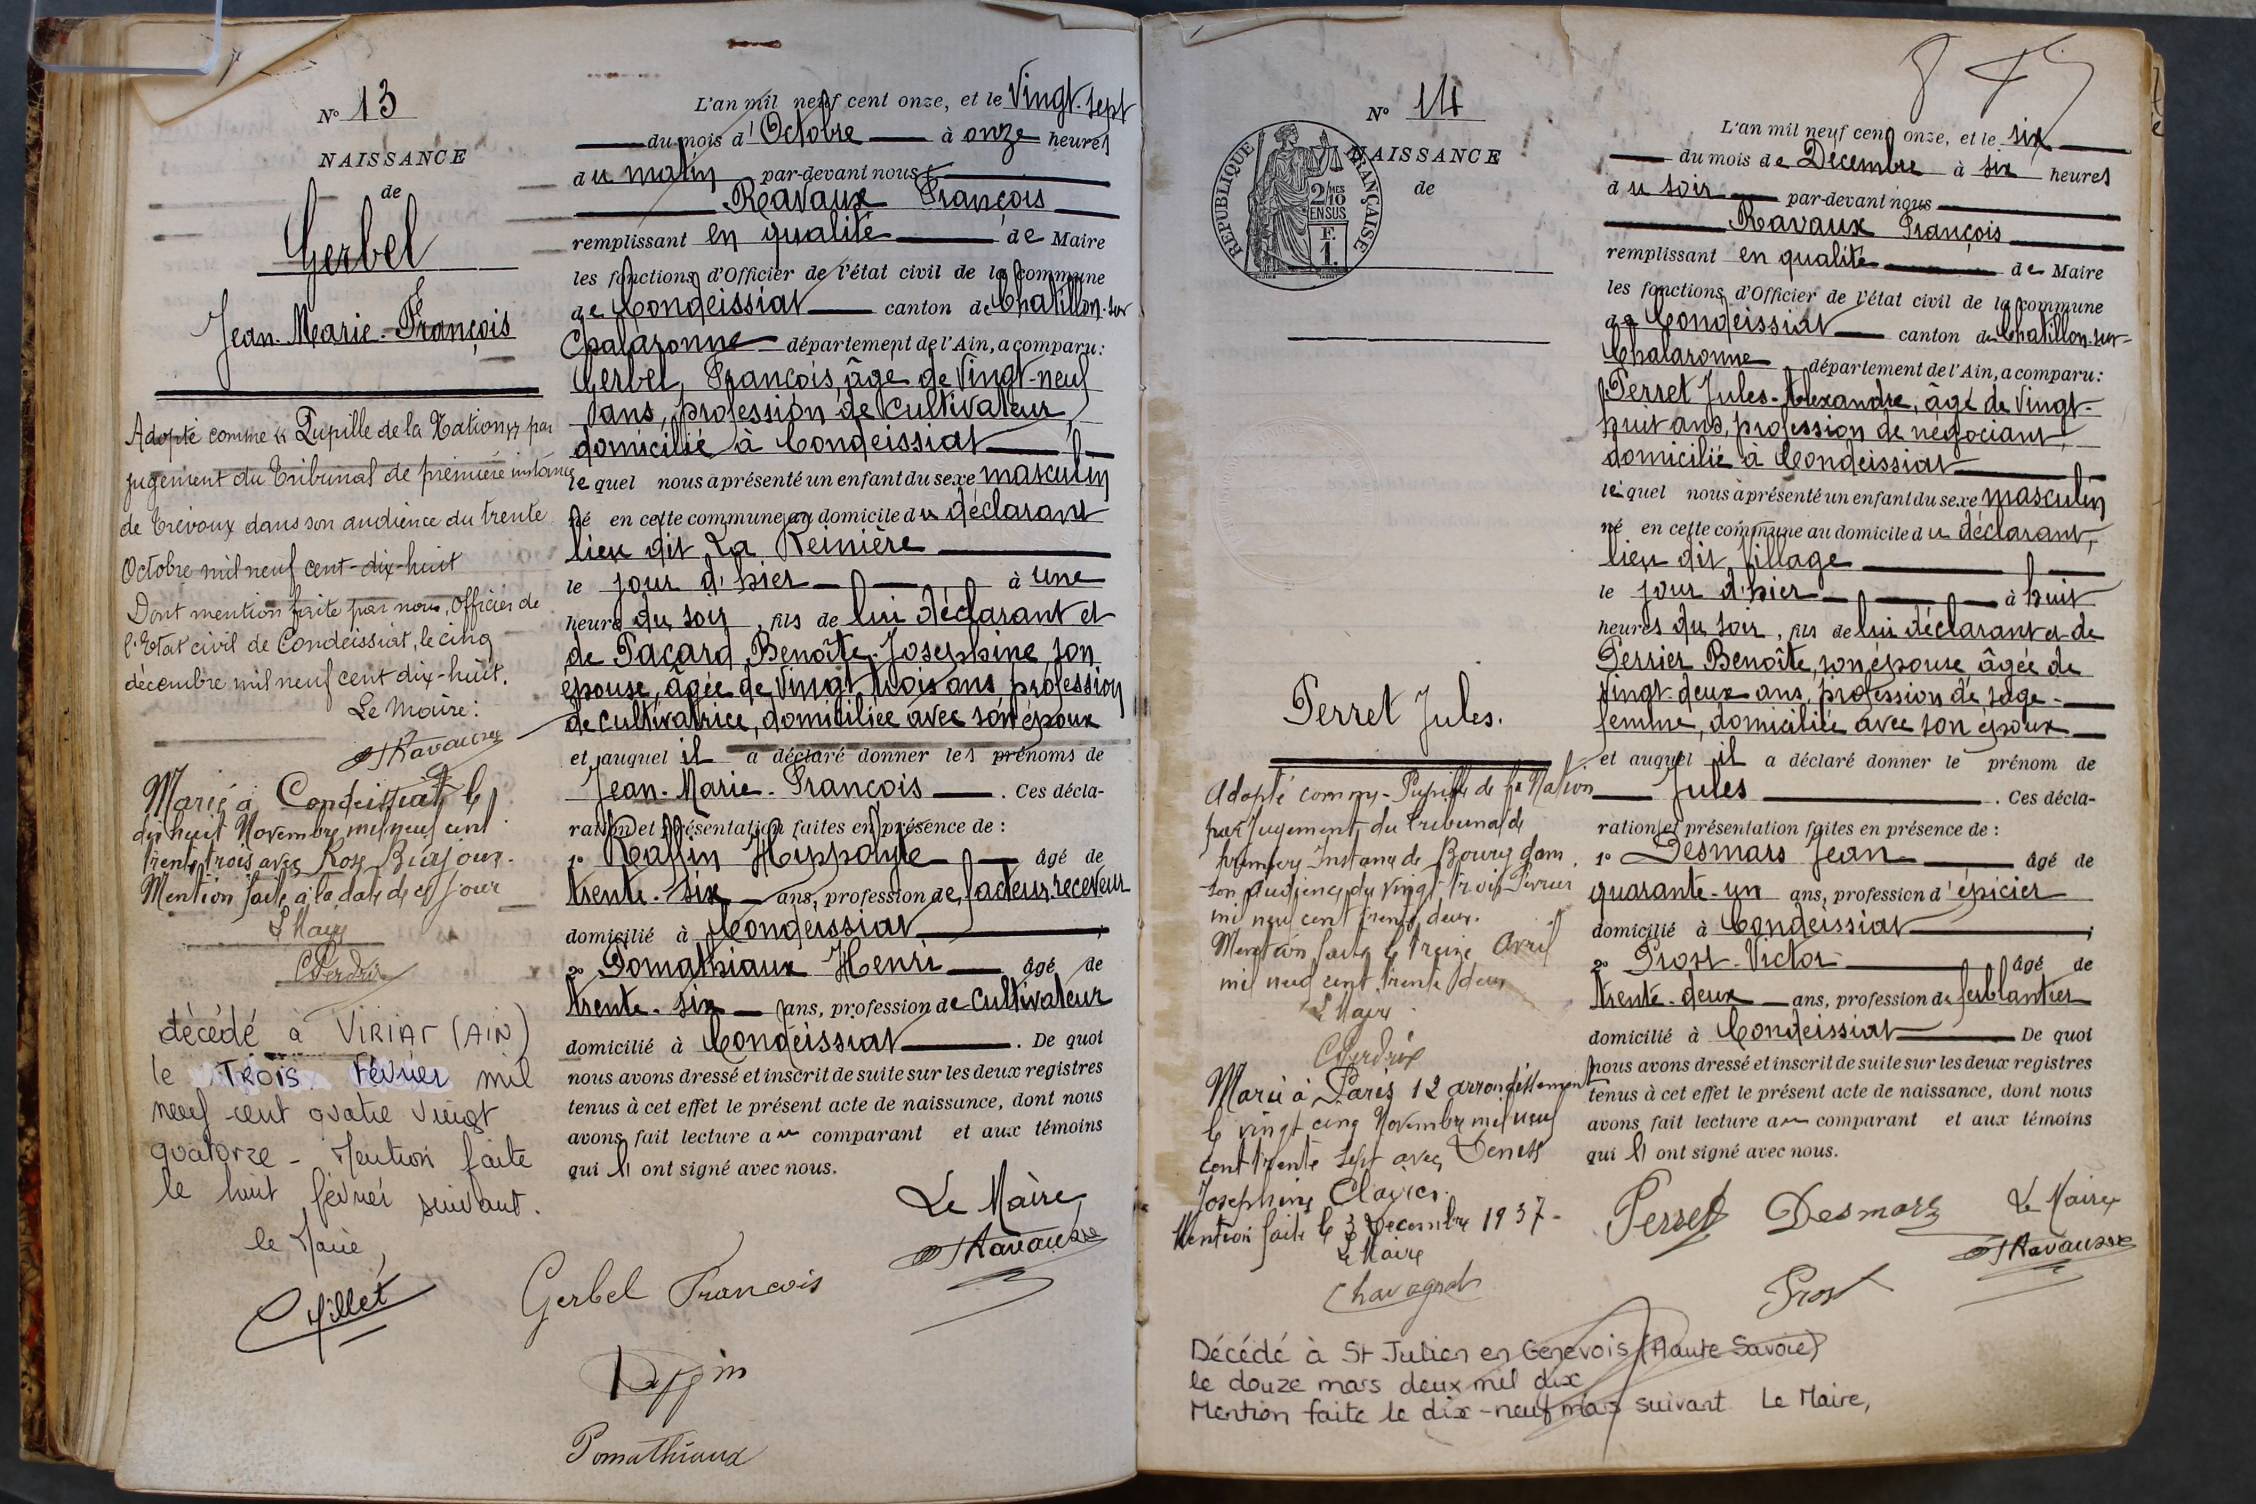 N° 13
NAISSANCE
de
Gerbel
Jean-Marie-François
Adopté comme « Pupille de la Nation » par
jugement du Tribunal de première instance
de Trévoux dans son audience du trente
Octobre mil neuf cent-dix-huit
Dont mention faite par nous, Officier de
l'Etat civil de Condeissiat, le cinq
décembre mil neuf cent dix-huit.
Le Maire:
Ravaux
Marié à Condeissiat le
dix huit Novembre mil neuf cent
trente trois avec Rose Burjoux.
Mention faite à la date de ce jour
L Maire
CPerdrix
décédé à VIRIAT (AIN)
le TROIS Février mil
neuf cent quatre vingt
quatorze - Mention faite
le huit février suivant.
le Maire,
L'an mil neuf cent onze, et le Vingt-sept
du mois d'Octobre à onze heures
du matin par-devant nous
Ravaux François
remplissant en qualité de Maire
les fonctions d'Officier de l'état civil de la commune
de Condeissiat canton de Chatillon-sur
Chalaronne département de l'Ain, a comparu:
Gerbel, François, âgé de Vingt-neuf
ans, profession de Cultivateur,
domicilié à Condeissiat
lequel nous a présenté un enfant du sexe masculin
né en cette commune au domicile du déclarant
lieu dit La Reinière
le jour d'hier à une
heure du soir, fils de lui déclarant et
de Pacard Benoîte-Josephine son
épouse, âgée de Vingt trois ans, profession
de cultivatrice, domiciliée avec son époux
et auquel il a déclaré donner les prénoms de
Jean-Marie-François. Ces décla-
ration et présentation faites en présence de:
1° Raffin Hippolyte âgé de
trente-six ans, profession de facteur-receveur
domicilié à Condeissiat;
2° Pomathiaux Henri âgé de
trente-six ans, profession de Cultivateur
domicilié à Condeissiat. De quoi
nous avons dressé et inscrit de suite sur les deux registres
tenus à cet effet le présent acte de naissance, dont nous
avons fait lecture au comparant et aux témoins
qui ont signé avec nous.
Le Maire
Ravaux
Gerbel Francois
Raffin
Pomathiaux
N° 14
NAISSANCE
de
RÉPUBLIQUE FRANÇAISE
2/10 MES
EN SUS
F.
1.
Perret Jules.
Adopté comme Pupille de la Nation
par jugement du Tribunal de
première Instance de Bourg dans
son audience du vingt trois Février
mil neuf cent trente deux.
Mention faite le treize Avril
mil neuf cent trente deux
L Maire
CPerdrix
Marié à Paris 12 arrondissement
le vingt cinq Novembre mil neuf
cent trente sept avec Denise
Josephine
Mention faite le 3 Decembre 1937-
Le Maire
Chavagnat
L'an mil neuf cent onze, et le six
du mois de Décembre à six heures
du soir par-devant nous
Ravaux François
remplissant en qualité de Maire
les fonctions d'Officier de l'état civil de la commune
de Condeissiat canton de Chatillon-sur-
Chalaronne département de l'Ain, a comparu:
Perret Jules-Alexandre, âgé de Vingt-
huit ans, profession de négociant
domicilié à Condeissiat
lequel nous a présenté un enfant du sexe masculin
né en cette commune au domicile du déclarant,
lieu dit Village
le jour d'hier à huit
heures du soir, fils de lui déclarant et de
Perrier Benoîte, son épouse âgée de
vingt-deux ans, profession de sage-
femme, domiciliée avec son époux
et auquel il a déclaré donner le prénom de
Jules. Ces décla-
ration et présentation faites en présence de:
1° Desmars Jean âgé de
quarante-un ans, profession d'épicier
domicilié à Condeissiat;
2° Prost Victor âgé de
trente-deux ans, profession de ferblantier
domicilié à Condeissiat De quoi
nous avons dressé et inscrit de suite sur les deux registres
tenus à cet effet le présent acte de naissance, dont nous
avons fait lecture au comparant et aux témoins
qui ont signé avec nous.
Perret Desmars Le Maire
Ravaux
Prost
Décédé à St Julien en Genevois (Haute Savoie)
le douze mars deux mil dix
Mention faite le dix-neuf mars suivant Le Maire,